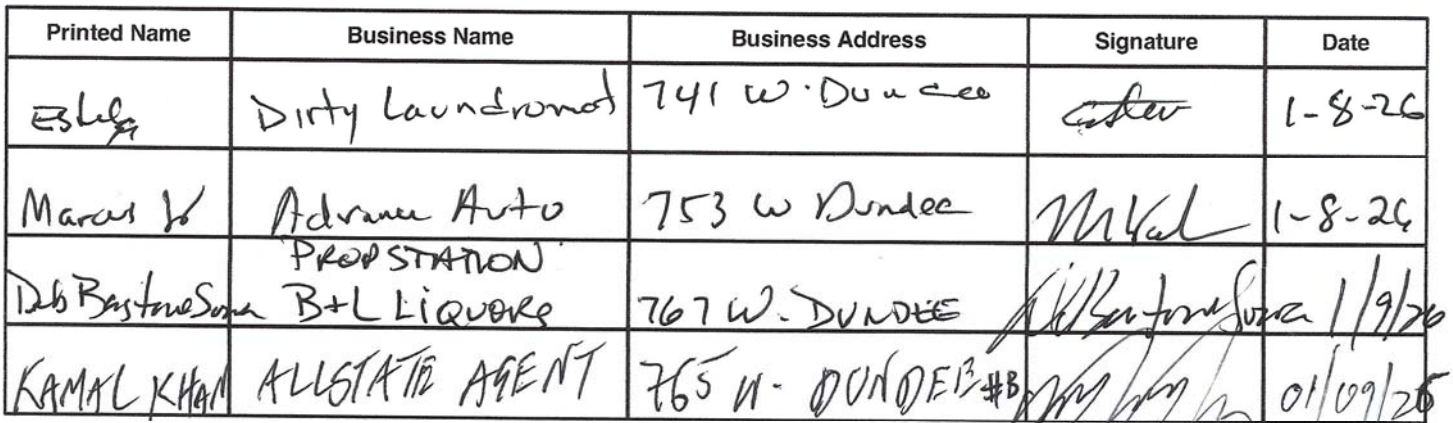 Printed Name Business Name Business Address Signature Date
Estela Dirty Laundromat 741 W. Dundee 1-8-26
Marcus Advance Auto 753 W Dundee 1-8-26
PROP STATION
Deb B+L LIQUORS 767 W. DUNDEE 1/9/26
KAMAL KHAN ALLSTATE AGENT 765 W. DUNDEE #B 01/09/26